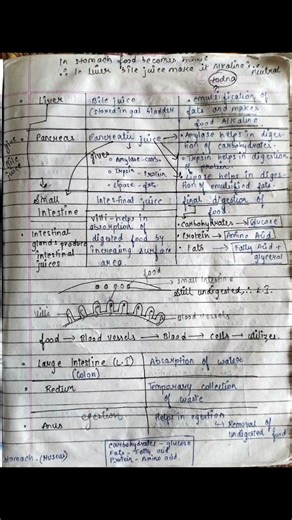 In stomach food becomes
∴ In liver bile juice make it Alkaline i.e. neutral
(todna)
• Liver Bile juice • emulsification of
(stored in gal bladder) fats and makes
food Alkaline
• Pancreas Pancreatic juice → Amylase helps in diges-
tion of carbohydrates.
gives • Amylase - carb. → Trypsin helps in digestion
• Trypsin - protein of proteins
• Lipase - fats → Lipase helps in diges-
tion of emulsified fats.
• Small Intestinal juice : final digestion of
Intestine food
• Intestinal Villi - helps in • Carbohydrates → Glucose
glands produce absorption of • Protein → Amino Acid
intestinal digested food by • Fats → Fatty Acid +
juices increasing surface glycerol
area
food
→ small Intestine
still undigested ∴ L.I.
Villi
→ blood vessels
food → Blood vessels → Blood → cells → utilizes
• Large Intestine (L.I) Absorption of water
(Colon)
• Rectum Temporary collection
of waste
• Anus egestion Helps in egestion
↳ Removal of
undigested food
Stomach. (MUSCUS)
Carbohydrates - glucose
Fats - Fatty acid
Protein - Amino acid.